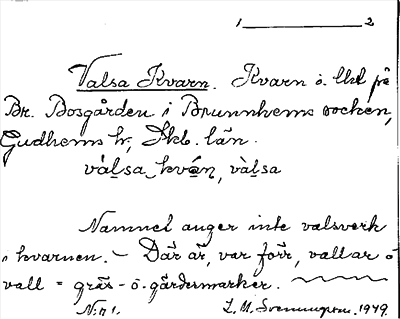 1 2
Valsa Kvarn. Kvarn o. lht på
Br. Bosgården i Brunnhems socken,
Gudhems hr, Skb. län.
válsa kván, vàlsa
Namnet anger inte valsverk
i kvarnen. – Där är, var förr, vallar o
vall = gräs- o. gärdesmarker.
N:r 1. L. M. Svenungsson. 1949.